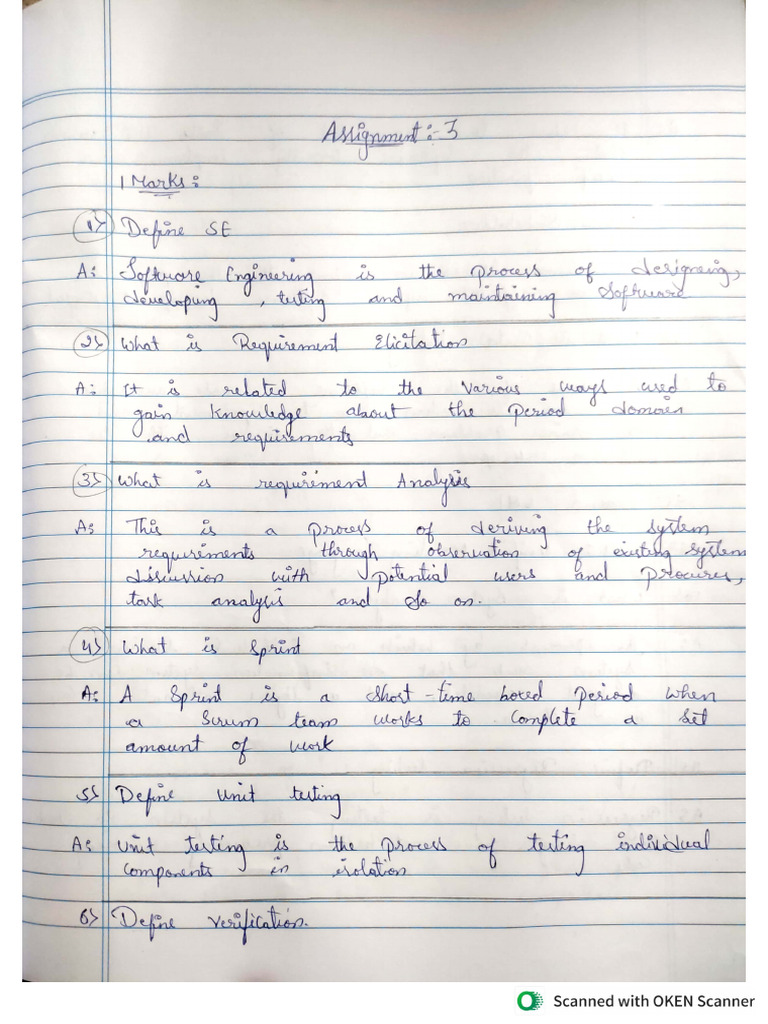 Assignment :- 3
1 Marks :
1> Define SE
A: Software Engineering is the process of designeing,
developing , testing and maintaining Software
2> What is Requirement Elicitation
A: It is related to the various ways used to
gain knowledge about the period domain
and requirements
3> What is requirement Analysis
A: This is a process of deriving the system
requirements through observation of existing system
discussion with potential users and procures,
task analysis and so on.
4> What is Sprint
A: A Sprint is a short-time boxed period when
a Scrum team works to complete a set
amount of work
5> Define Unit testing
A: Unit testing is the process of testing individual
components in isolation
6> Define verification.
Scanned with OKEN Scanner